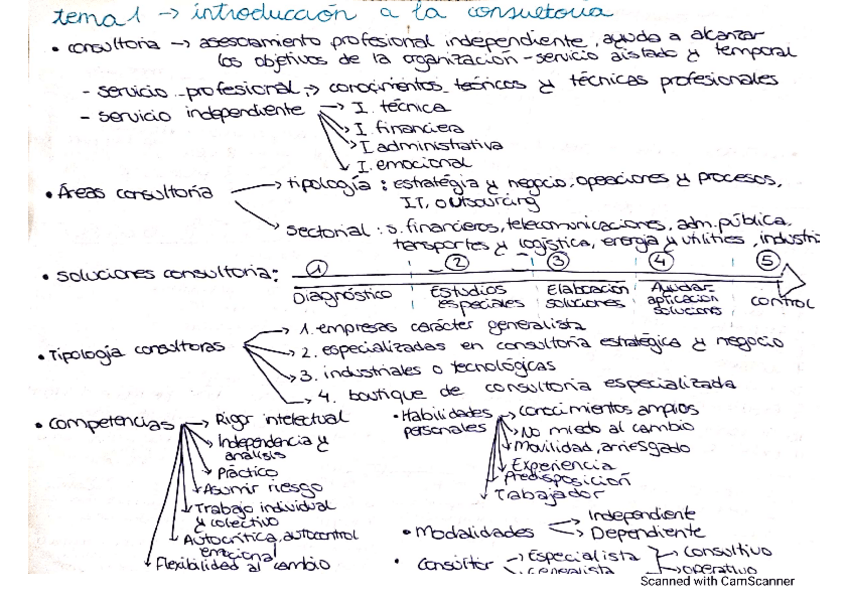 tema 1 → introducción a la consultoria
• consultoria → asesoramiento profesional independiente, ayuda a alcanzar
los objetivos de la organización - servicio aislado y temporal
- servicio profesional → conocimientos teóricos y técnicas profesionales
- servicio independiente → I. técnica
I. financiera
I administrativa
I. emocional
• Áreas consultoria → tipología : estrategia y negocio, operaciones y procesos,
IT, outsourcing
sectorial : s. financieros, telecomunicaciones, adm. pública,
transportes y logística, energia y utilities, industri
• soluciones consultoria: 1 2 3 4 5
Diagnóstico Estudios especiales Elaboración soluciones Ayudar aplicacion solucions control
• Tipología consultoras → 1. empresas carácter generalista
2. especializadas en consultoria estratégica y negocio
3. industriales o tecnológicas
4. boutique de consultoria especializada
• Competencias → Rigor intelectual
Independencia y
análisis
Práctico
Asumir riesgo
Trabajo individual
y colectivo
Autocrítica, autocontrol
emocional
Flexibilidad al cambio
• Habilidades personales → conocimientos amplios
No miedo al cambio
Movilidad, arriesgado
Experiencia
Predisposición
Trabajador
• Modalidades → Independiente
Dependiente
• Consultor → Especialista → consultivo
generalista → operativo
Scanned with CamScanner